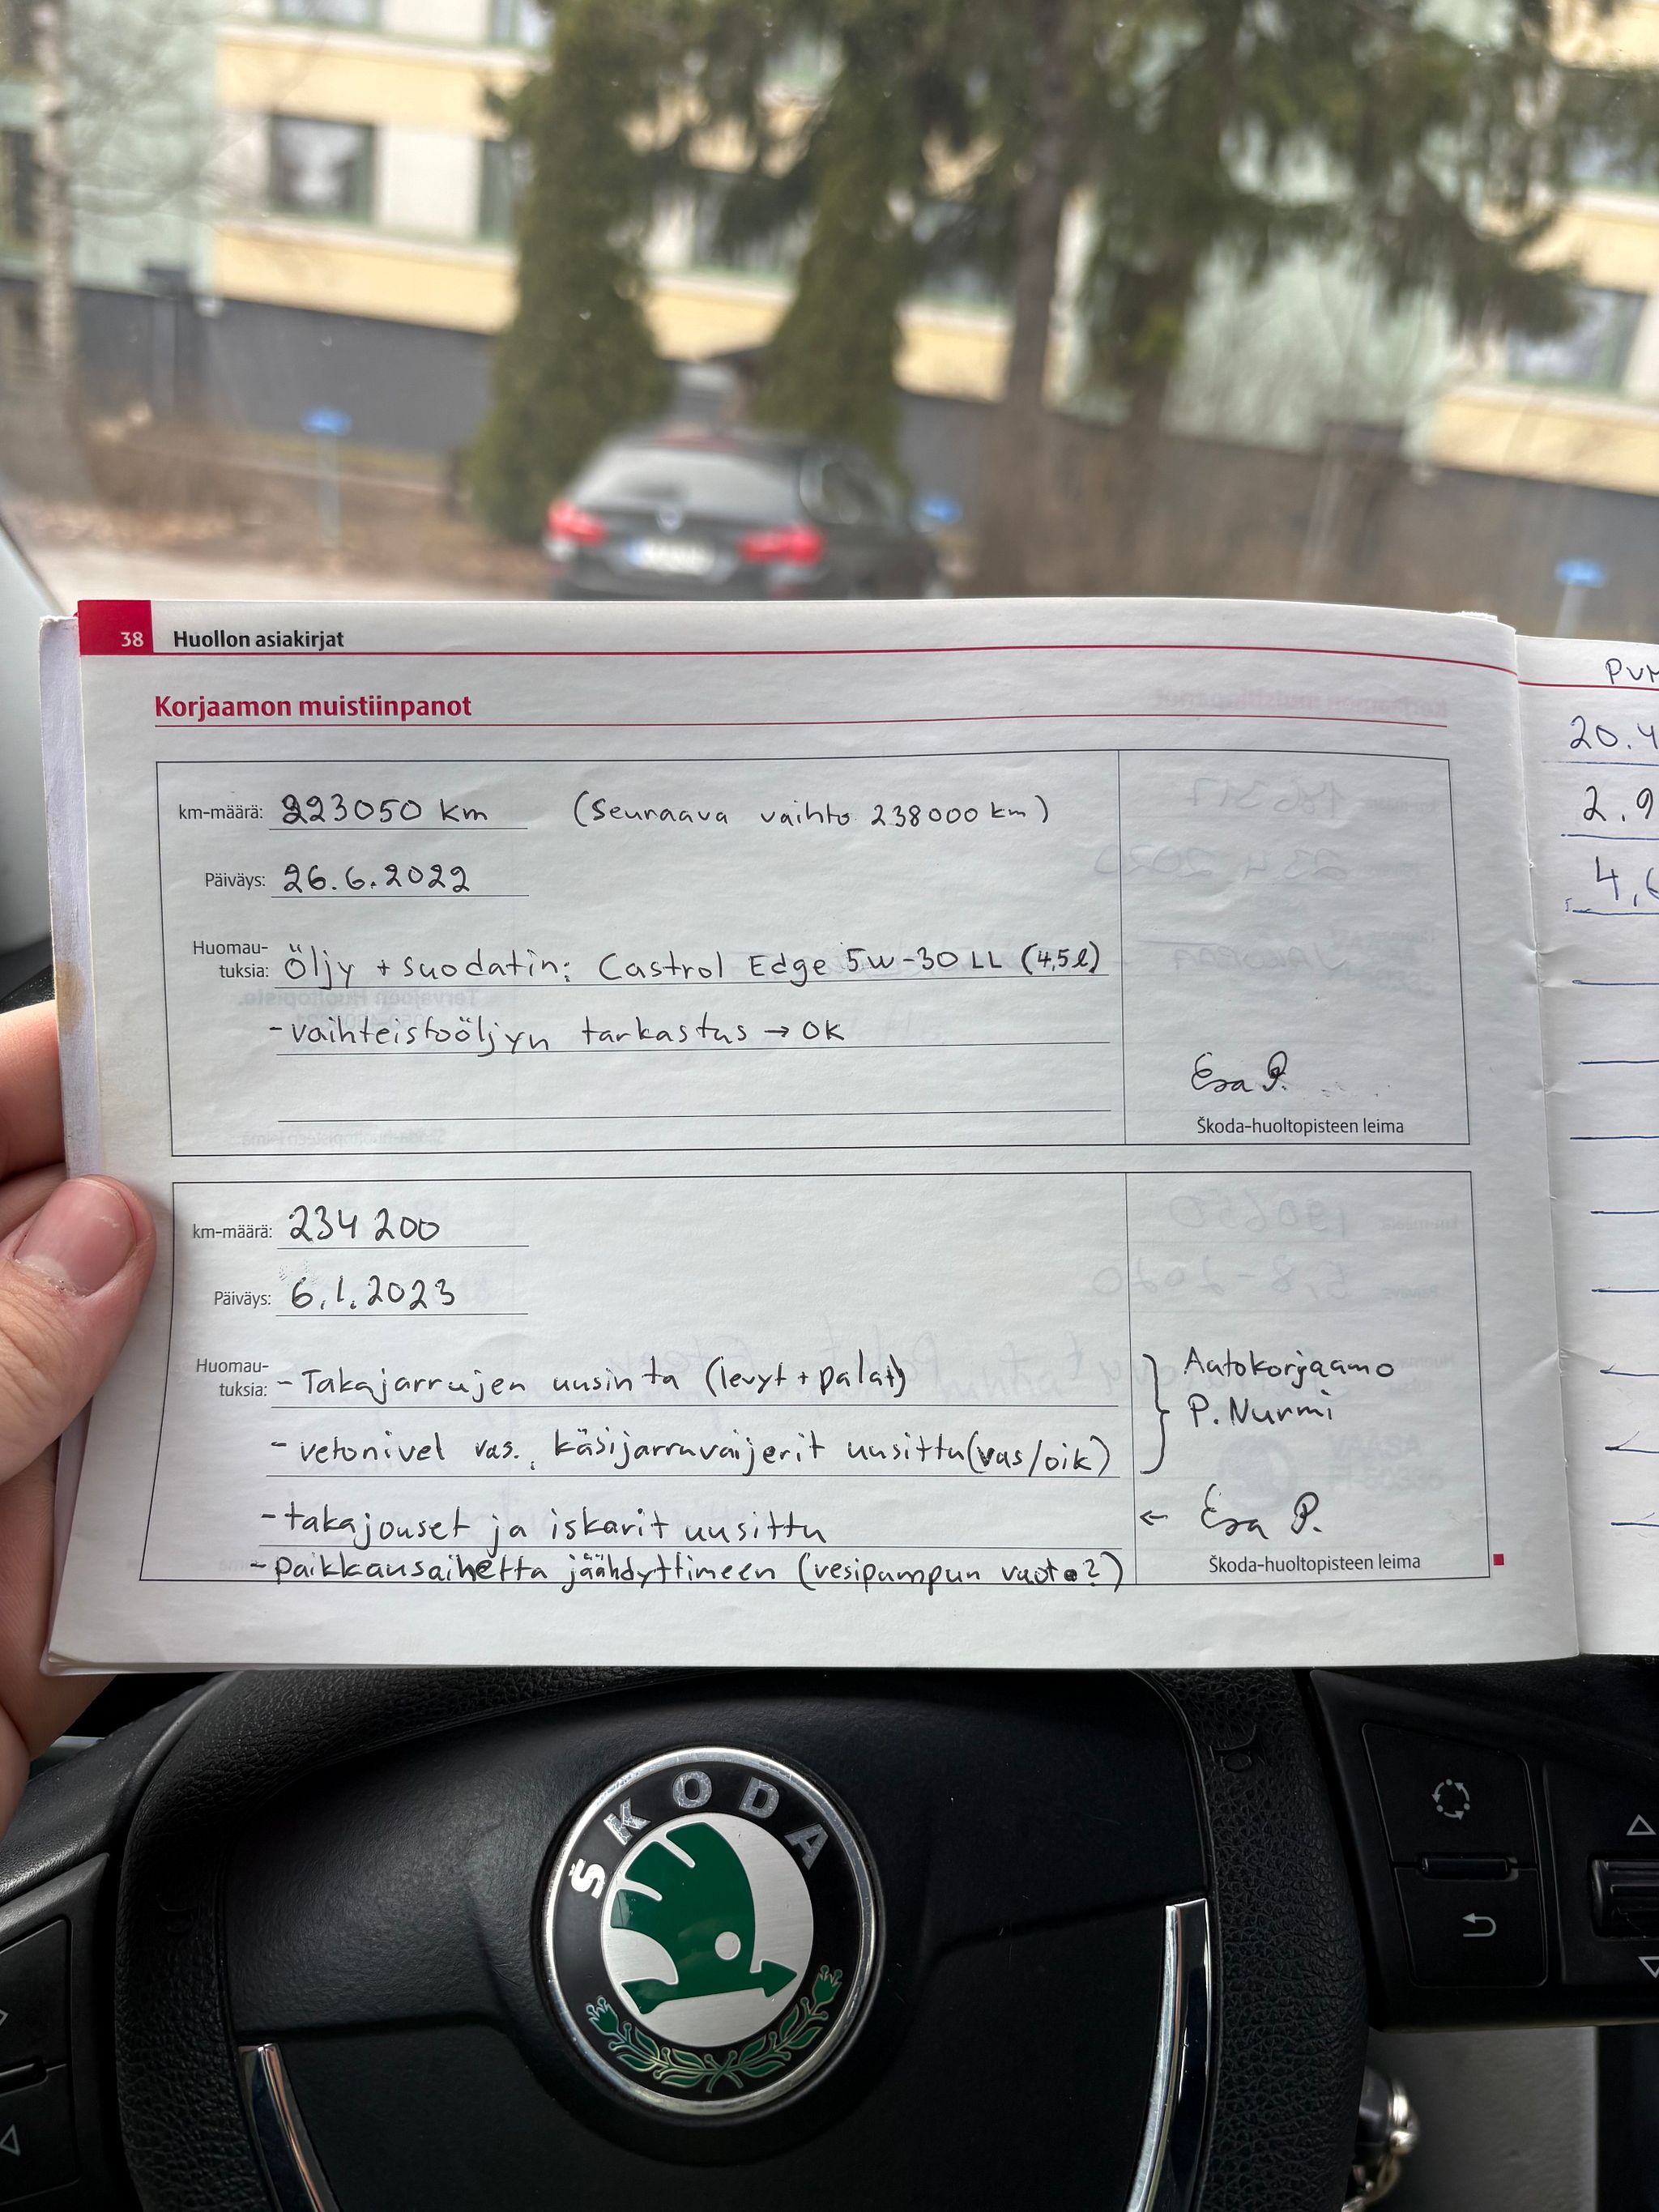 38 Huollon asiakirjat
Korjaamon muistiinpanot
km-määrä: 223050 km (Seuraava vaihto 238000 km)
Päiväys: 26.6.2022
Huomau-
tuksia: Öljy + suodatin: Castrol Edge 5W-30 LL (4,5l)
- vaihteistoöljyn tarkastus → OK
Esa P.
Škoda-huoltopisteen leima
km-määrä: 234 200
Päiväys: 6.1.2023
Huomau-
tuksia: - Takajarrujen uusinta (levyt + palat)
- vetonivel vas. käsijarruvaijerit uusittu (vas/oik)
Autokorjaamo
P. Nurmi
- takajouset ja iskarit uusittu
← Esa P.
- paikkausaihetta jäähdyttimeen (vesipumpun vuoto?)
Škoda-huoltopisteen leima
20.4
2.9
ŠKODA